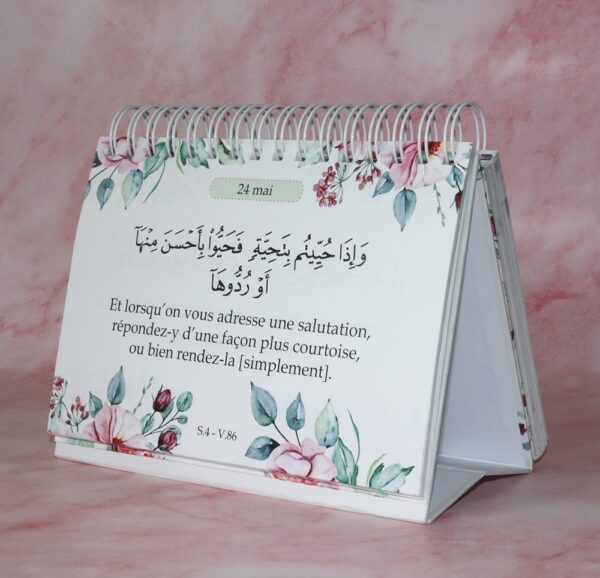 24 mai
وَإِذَا حُيِّيتُم بِتَحِيَّةٍ فَحَيُّوا۟ بِأَحْسَنَ مِنْهَآ
أَوْ رُدُّوهَآ
Et lorsqu'on vous adresse une salutation,
répondez-y d'une façon plus courtoise,
ou bien rendez-la [simplement].
S.4 - V.86